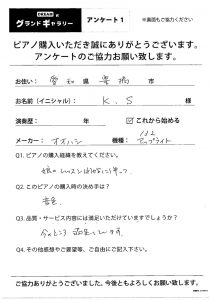 グランドギャラリー アンケート1 ※裏面もご協力ください
ピアノ購入いただき誠にありがとうございます。
アンケートのご協力お願い致します。
お住い: 愛知 県 豊橋 市
お名前(イニシャル): K.S 様
演奏歴: 年 ☑ これから始める
メーカー: オオハシ 機種: 132 アップライト
Q1. ピアノの購入経緯を教えてください。
娘のレッスン
Q2. このピアノの購入時の決め手は?
音色
Q3. 品質・サービス内容には満足いただけていますでしょうか?
今のところ 満足しています。
Q4. その他感想やご要望等、ご自由にご記入下さい。
ご協力ありがとうございました。今後ともよろしくお願い致します。